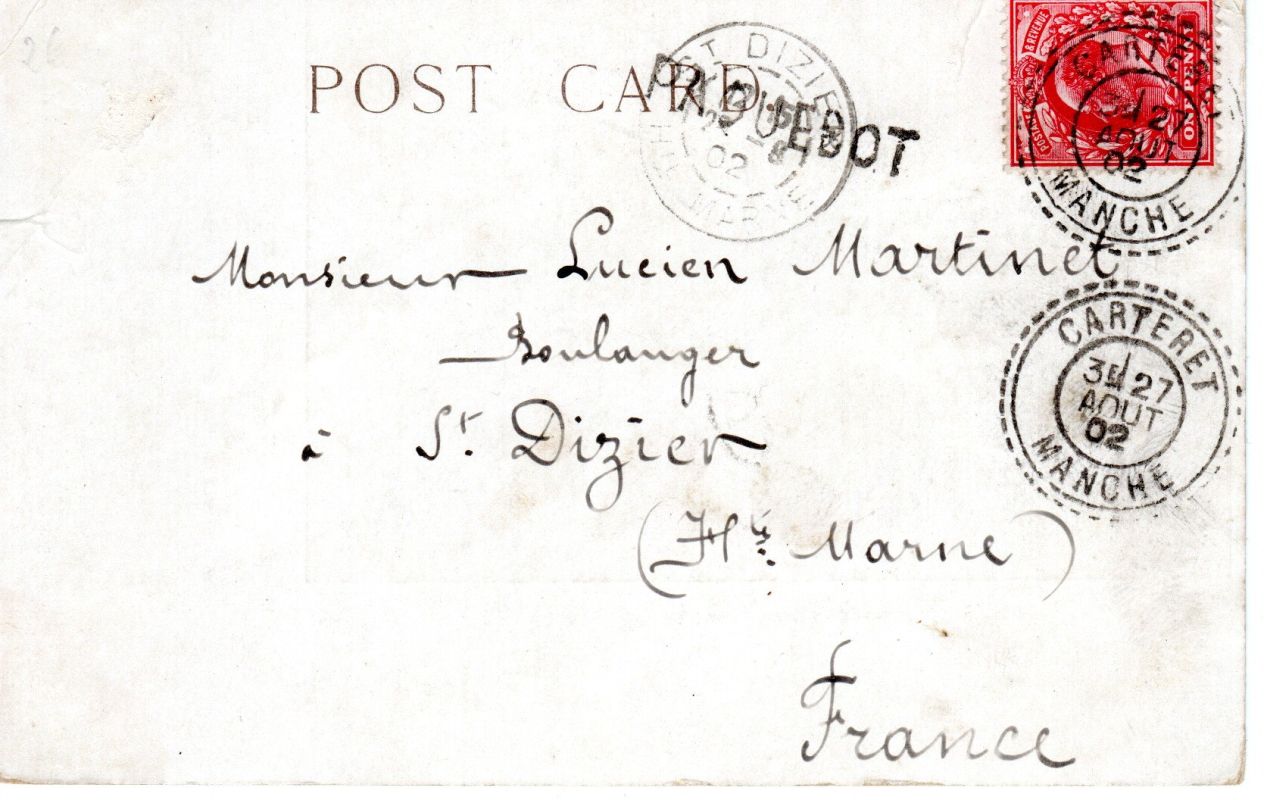 26
POST CARD
PAQUEBOT
ST DIZIER
02
HTE MARNE
POSTAGE & REVENUE
ONE PENNY
CARTERET
3E 27
AOUT
02
MANCHE
Monsieur Lucien Martinet
Boulanger
à St. Dizier
(Hte. Marne)
France
CARTERET
3E 27
AOUT
02
MANCHE